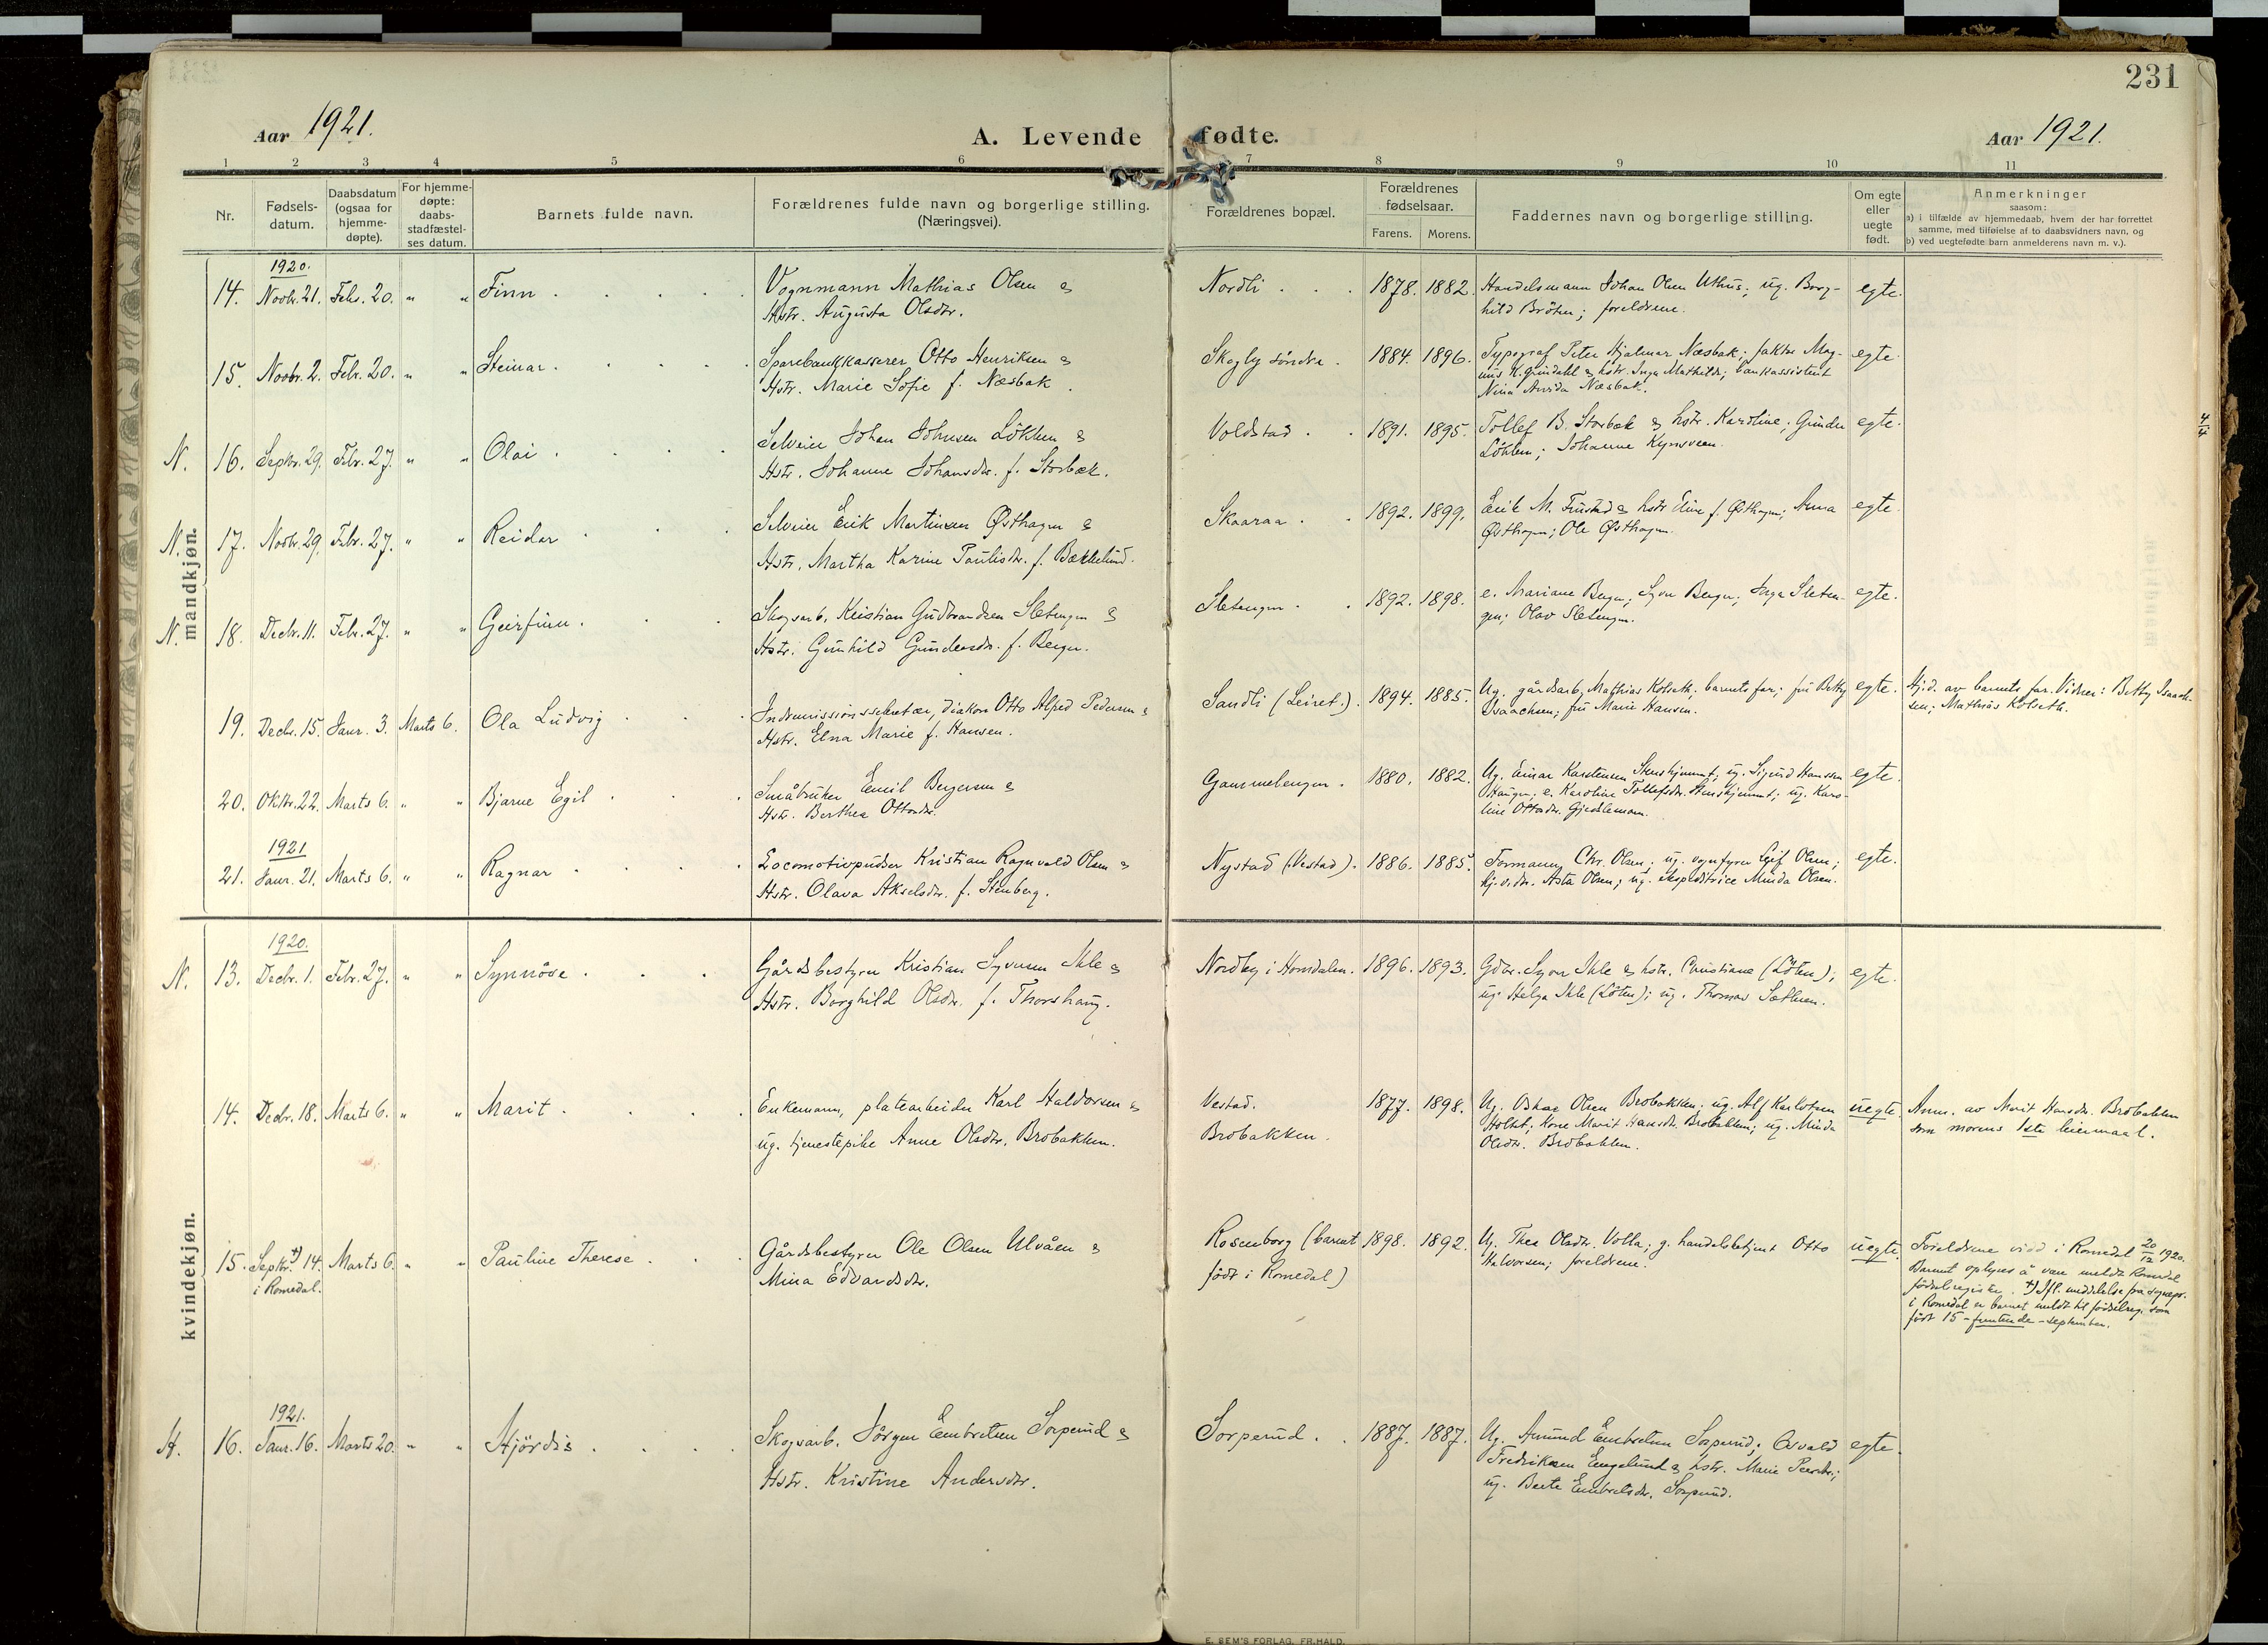 231
Aar 1921. A. Levende fødte. Aar 1921.
1 2 3 4 5 6 7 8 9 10 11
Nr.
Fødsels-
datum.
Daabsdatum
(ogsaa for
hjemme-
døpte).
For hjemme-
døpte:
daabs-
stadfæstel-
ses datum.
Barnets fulde navn.
Forældrenes fulde navn og borgerlige stilling.
(Næringsvei).
Forældrenes bopæl.
Forældrenes
fødselsaar.
Farens. Morens.
Faddernes navn og borgerlige stilling.
Om egte
eller
uegte
født.
Anmerkninger
saasom:
a) i tilfælde av hjemmedaab, hvem der har forrettet
samme, med tilføielse af to daabsvidners navn, og
b) ved uegtefødte barn anmelderens navn m. v.).
mandkjøn.
1920.
14. Novbr. 21. Febr. 20. " " Finn
Vognmann Mathias Olsen &
Hstr. Augusta Olsdtr.
Nordli 1878. 1882.
Handelsmann Johan Olsen Uthus; ug. Borg-
hild Bråten; foreldrene.
egte.
15. Novbr. 2. Febr. 20. " " Steinar.
Sparebankkasserer Otto Henriksen &
Hstr. Marie Sofie f. Næsbak.
Skogly søndre 1884. 1896.
Typograf Peter Hjalmar Næsbak; faktor Mag-
nus K. Grindahl & hstr. Inga Mathilde; bankassistent
Nina Næsbak.
egte.
N. 16. Septbr. 29. Febr. 27. " " Olai
Selveier Johan Johnsen Løkken &
Hstr. Johanne Johansdtr. f. Storbæk.
Voldstad 1891. 1895.
Tollef B. Storbæk & hstr. Karoline; Gunder
Løkken; Johanne
egte.
4/4
N. 17. Novbr. 29. Febr. 27. " " Reidar
Selveier Erik Martinsen Østhagen &
Hstr. Martha Karine Paulisdtr. f. Bækkelund.
Skaaraa 1892. 1899.
Erik M. & hstr. Eline f. Østhagen; Anna
Østhagen; Ole Østhagen.
egte.
N. 18. Decbr. 11. Febr. 27. " " Geirfinn.
Skogsarb. Kristian Gudbrandsen Sletengen &
Hstr. Gunhild Gundersdtr. f. Berger.
Sletengen 1892. 1898.
e. Mariane Berger; Syver Berger; Inga Sleten-
gen; Olav Sletengen.
egte.
19. Decbr. 15. Janr. 3. Marts 6. Ola Ludvig
Indremissionssekretær, diakon Otto Alfred Pedersen &
Hstr. Elna Marie f. Hansen.
Sandli (Leiret.) 1894. 1885.
Ug. gårdsarb. Mathias Kolseth; barnets far; fru Betty
Isaachsen; fru Marie Hansen.
egte.
Hj.d. av barnets far. Vidner: Betty Isaach-
sen; Mathias Kolseth.
20. Oktbr. 22. Marts 6. " " Bjarne Egil
Småbruker Emil Bergersen &
Hstr. Berthea Ottosdtr.
Gammelengen. 1880. 1882.
Ug. Einar Karstensen Stenshjemmet; ug. Sigurd Hanssen
Haugen; e. Karoline Tollefsdtr. Stenshjemmet; ug. Karo-
line Ottosdtr.
egte.
1921
21. Janr. 21. Marts 6. " " Ragnar
Locomotivpudser Kristian Ragnvald Olsen &
Hstr. Olava Akselsdtr. f. Stenberg.
Nystad (Vestad). 1886. 1885.
Formann Chr. Olsen; ug. vognfyrer Leif Olsen;
Asta Olsen; ug. ekspeditrice Minda Olsen.
egte.
kvindekjøn.
1920.
N. 13. Decbr. 1. Febr. 27. " " Synnöve
Gårdsbestyrer Kristian Syversen Ihle &
Hstr. Borghild Olsdtr. f. Thorshaug.
Nordby i Homdalen. 1896. 1893.
Gdbr. Syver Ihle & hstr. Christiane (Löten);
ug. Helga Ihle (Löten); ug. Thomas Sætheren.
egte.
14. Decbr. 18. Marts 6. " " Marit.
Enkemann, platearbeider Karl Haldorsen &
ug. tjenestepike Anne Olsdtr. Brobakken.
Vestad.
Brobakken. 1877. 1898.
Ug. Oskar Olsen Brobakken; ug. Alf Karlotsen
Holset; Kone Marit Hansdtr. Brobakken; ug. Minda
Olsdtr. Brobakken.
uegte.
Anm. av Marit Hansdtr. Brobakken
som morens 1ste leiermaal.
15. Septbr. +) 14. Marts 6. " " Pauline Therese
i Romedal.
Gårdsbestyrer Ole Olsen Ulvåen &
Mina Edvardsdtr.
Rosenborg (barnet
født i Romedal) 1898. 1892.
Ug. Thea Olsdtr. Volla; g. handelsbetjent Otto
Halvorsen; foreldrene.
uegte.
Foreldrene viet i Romedal 20/12 1920.
Barnet oplyses å være meldt Romedal
fødselregister. +) Ifl. meddelelse fra sognepr.
i Romedal er barnet meldt til fødselreg. som
født 15 - femtende - september.
1921.
H. 16. Janr. 16. Marts 20. " " Hjördis
Skogsarb. Jørgen Embretsen Sorperud &
Hstr. Kristine Andersdtr.
Sorperud. 1887. 1887.
Ug. Amund Embretsen Sorperud; Osvald
Fredriksen Engelund & hstr. Marie
ug. Beate Embretsdtr. Sorperud.
egte.
E. SEM'S FORLAG, FR.HALD.